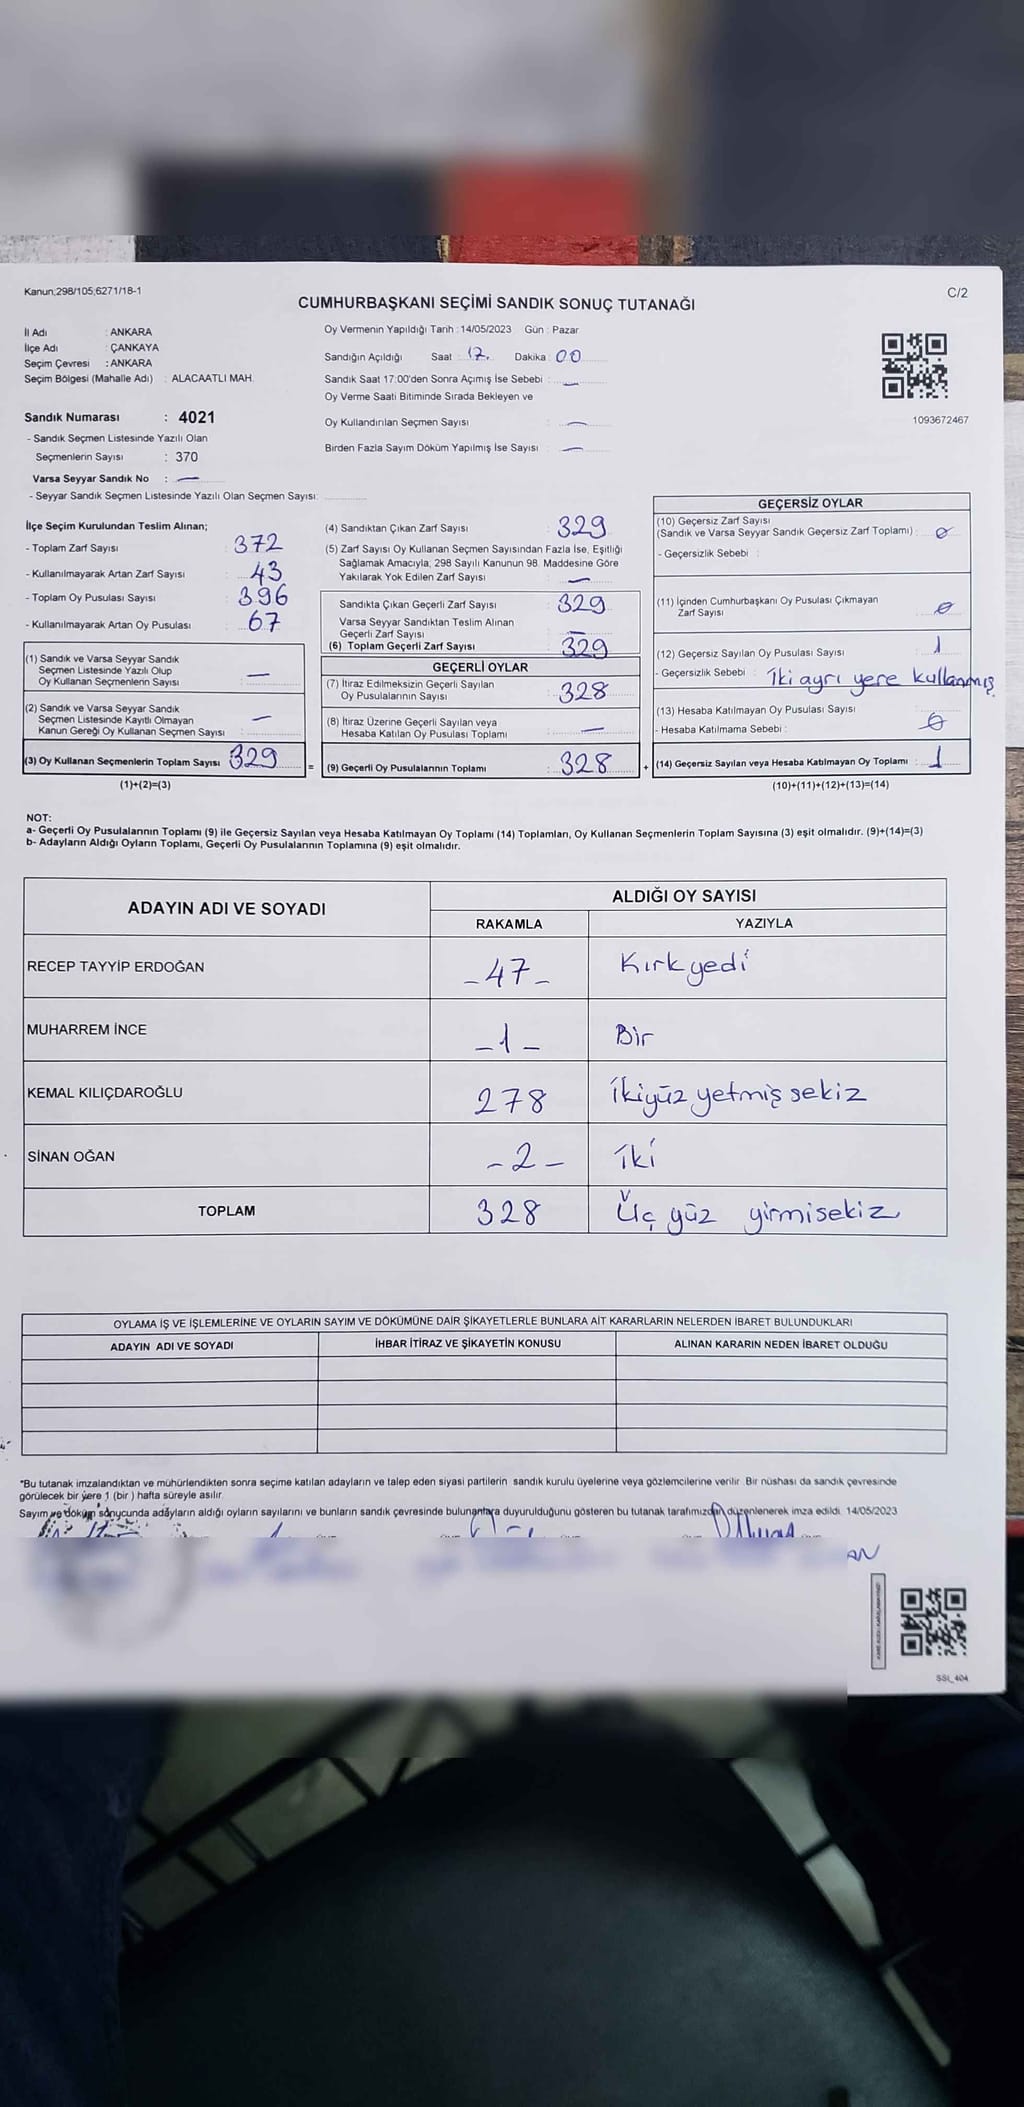 Kanun;298/105;6271/18-1
C/2
CUMHURBAŞKANI SEÇİMİ SANDIK SONUÇ TUTANAĞI
İl Adı : ANKARA
İlçe Adı : ÇANKAYA
Seçim Çevresi : ANKARA
Seçim Bölgesi (Mahalle Adı) : ALACAATLI MAH.
Oy Vermenin Yapıldığı Tarih : 14/05/2023 Gün : Pazar
Sandığın Açıldığı Saat : 17. Dakika : 00
Sandık Saat 17:00'den Sonra Açımış İse Sebebi : —
Oy Verme Saati Bitiminde Sırada Bekleyen ve
Oy Kullandırılan Seçmen Sayısı : —
Birden Fazla Sayım Döküm Yapılmış İse Sayısı : —
1093672467
Sandık Numarası : 4021
- Sandık Seçmen Listesinde Yazılı Olan
Seçmenlerin Sayısı : 370
Varsa Seyyar Sandık No : —
- Seyyar Sandık Seçmen Listesinde Yazılı Olan Seçmen Sayısı:
İlçe Seçim Kurulundan Teslim Alınan;
- Toplam Zarf Sayısı : 372
- Kullanılmayarak Artan Zarf Sayısı : 43
- Toplam Oy Pusulası Sayısı : 396
- Kullanılmayarak Artan Oy Pusulası : 67
(1) Sandık ve Varsa Seyyar Sandık
Seçmen Listesinde Yazılı Olup
Oy Kullanan Seçmenlerin Sayısı : —
(2) Sandık ve Varsa Seyyar Sandık
Seçmen Listesinde Kayıtlı Olmayan
Kanun Gereği Oy Kullanan Seçmen Sayısı : —
(3) Oy Kullanan Seçmenlerin Toplam Sayısı 329 =
(1)+(2)=(3)
(4) Sandıktan Çıkan Zarf Sayısı : 329
(5) Zarf Sayısı Oy Kullanan Seçmen Sayısından Fazla İse, Eşitliği
Sağlamak Amacıyla, 298 Sayılı Kanunun 98. Maddesine Göre
Yakılarak Yok Edilen Zarf Sayısı : —
Sandıkta Çıkan Geçerli Zarf Sayısı : 329
Varsa Seyyar Sandıktan Teslim Alınan
Geçerli Zarf Sayısı : —
(6) Toplam Geçerli Zarf Sayısı : 329
GEÇERLİ OYLAR
(7) İtiraz Edilmeksizin Geçerli Sayılan
Oy Pusulalarının Sayısı : 328
(8) İtiraz Üzerine Geçerli Sayılan veya
Hesaba Katılan Oy Pusulası Toplamı : —
(9) Geçerli Oy Pusulalarının Toplamı : 328 +
GEÇERSİZ OYLAR
(10) Geçersiz Zarf Sayısı
(Sandık ve Varsa Seyyar Sandık Geçersiz Zarf Toplamı) : 0
- Geçersizlik Sebebi :
(11) İçinden Cumhurbaşkanı Oy Pusulası Çıkmayan
Zarf Sayısı : 0
(12) Geçersiz Sayılan Oy Pusulası Sayısı : 1
- Geçersizlik Sebebi : İki ayrı yere kullanmış
(13) Hesaba Katılmayan Oy Pusulası Sayısı : 0
- Hesaba Katılmama Sebebi :
(14) Geçersiz Sayılan veya Hesaba Katılmayan Oy Toplamı : 1
(10)+(11)+(12)+(13)=(14)
NOT:
a- Geçerli Oy Pusulalarının Toplamı (9) ile Geçersiz Sayılan veya Hesaba Katılmayan Oy Toplamı (14) Toplamları, Oy Kullanan Seçmenlerin Toplam Sayısına (3) eşit olmalıdır. (9)+(14)=(3)
b- Adayların Aldığı Oyların Toplamı, Geçerli Oy Pusulalarının Toplamına (9) eşit olmalıdır.
ADAYIN ADI VE SOYADI ALDIĞI OY SAYISI
RAKAMLA YAZIYLA
RECEP TAYYİP ERDOĞAN -47- Kırkyedi
MUHARREM İNCE -1- Bir
KEMAL KILIÇDAROĞLU 278 İkiyüz yetmiş sekiz
SİNAN OĞAN -2- İki
TOPLAM 328 Üç yüz yirmisekiz
OYLAMA İŞ VE İŞLEMLERİNE VE OYLARIN SAYIM VE DÖKÜMÜNE DAİR ŞİKAYETLERLE BUNLARA AİT KARARLARIN NELERDEN İBARET BULUNDUKLARI
ADAYIN ADI VE SOYADI İHBAR İTİRAZ VE ŞİKAYETİN KONUSU ALINAN KARARIN NEDEN İBARET OLDUĞU
*Bu tutanak imzalandıktan ve mühürlendikten sonra seçime katılan adayların ve talep eden siyasi partilerin sandık kurulu üyelerine veya gözlemcilerine verilir. Bir nüshası da sandık çevresinde
görülecek bir yere 1 (bir) hafta süreyle asılır.
Sayım ve döküm sonucunda adayların aldığı oyların sayılarını ve bunların sandık çevresinde bulunanlara duyurulduğunu gösteren bu tutanak tarafımızdan düzenlenerek imza edildi. 14/05/2023
SSI_404